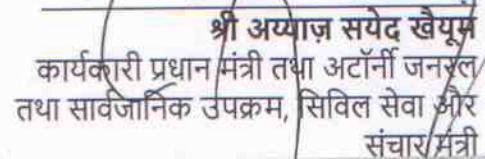 श्री अय्याज़ सयेद खैयूम
कार्यकारी प्रधान मंत्री तथा अटॉर्नी जनरल
तथा सार्वजानिक उपक्रम, सिविल सेवा और
संचार मंत्री